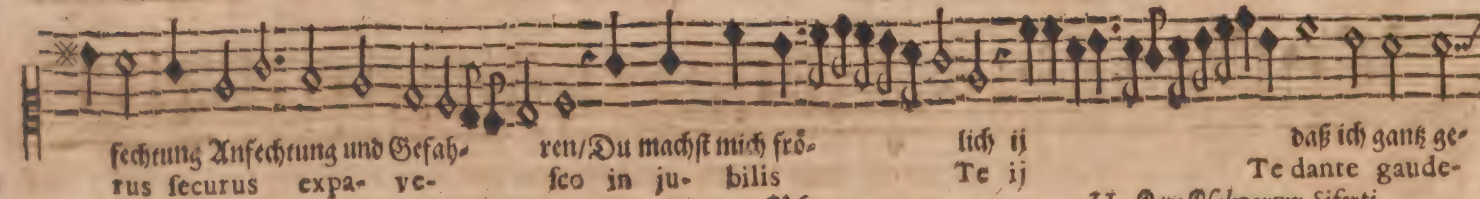 fechtung Anfechtung und Gefah- ren/ Du machst mich frö- lich ij daß ich gantz ge-
rus securus expa- ve- sco in ju- bilis Te ij Te dante gaude-